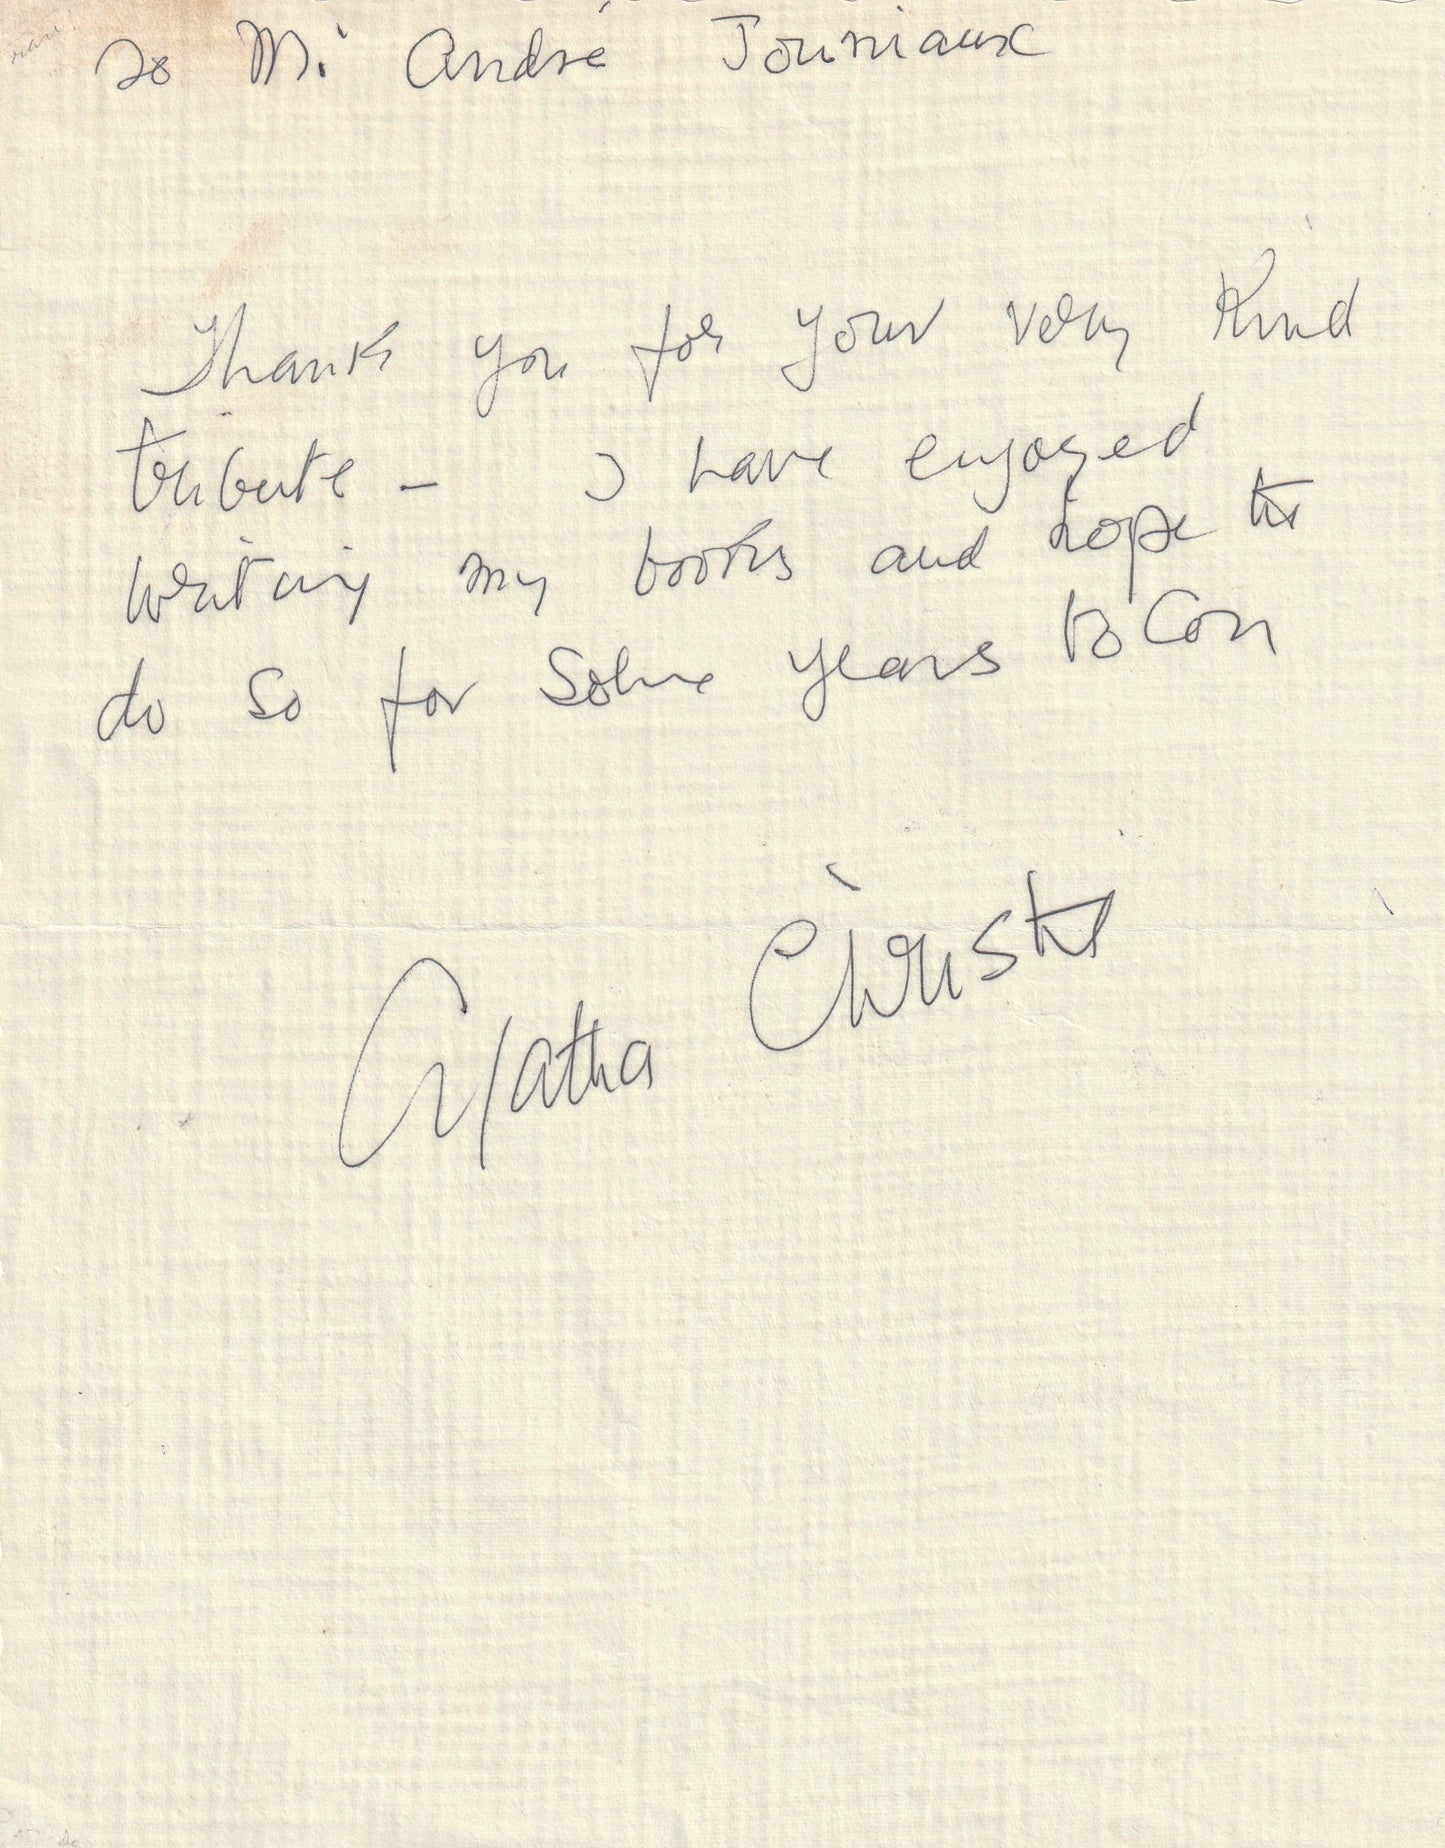 To Mr André Jouniaux
Thank you for your very kind
tribute - I have enjoyed
writing my books and hope to
do so for some years to com
Agatha Christie